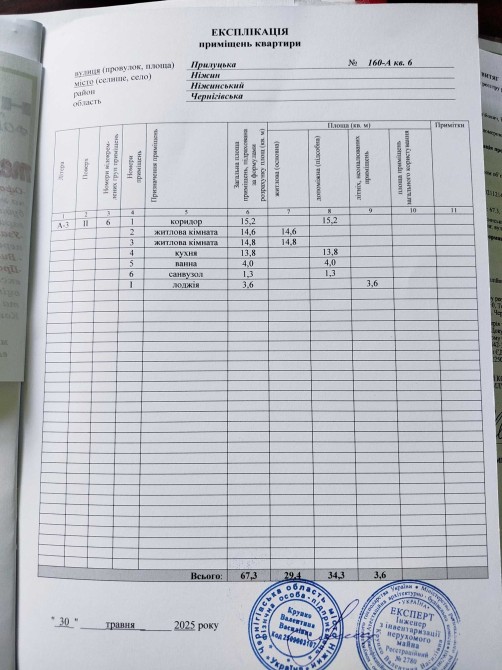 ЕКСПЛІКАЦІЯ
приміщень квартири
вулиця (провулок, площа) Прилуцька № 160-А кв. 6
місто (селище, село) Ніжин
район Ніжинський
область Чернігівська
Літера Номера Номери відокремлених груп приміщень Номери приміщень Призначення приміщень Загальна площа приміщень, підрахована за формулами розрахунку площ (кв. м) Площа (кв. м) Примітки
житлова (основна) допоміжна (підсобна) літніх, неопалюваних приміщень площа приміщень загального користування
1 2 3 4 5 6 7 8 9 10 11
А-3 II 6 1 коридор 15,2 15,2
2 житлова кімната 14,6 14,6
3 житлова кімната 14,8 14,8
4 кухня 13,8 13,8
5 ванна 4,0 4,0
6 санвузол 1,3 1,3
I лоджія 3,6 3,6
Всього: 67,3 29,4 34,3 3,6
" 30 " травня 2025 року
Чернігівська область місто Ніжин
фізична особа-підприємець
Валентина
Василівна
Україна
УКРАЇНА
ЕКСПЕРТ
Інженер
з інвентаризації
нерухомого
майна
Реєстраційний
№ 2780